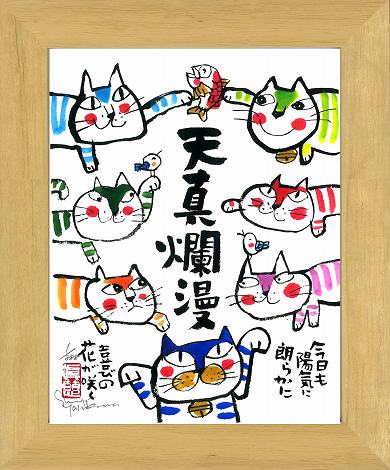 天真爛漫
今日も
陽気に
朗らかに
喜びの
花が咲く